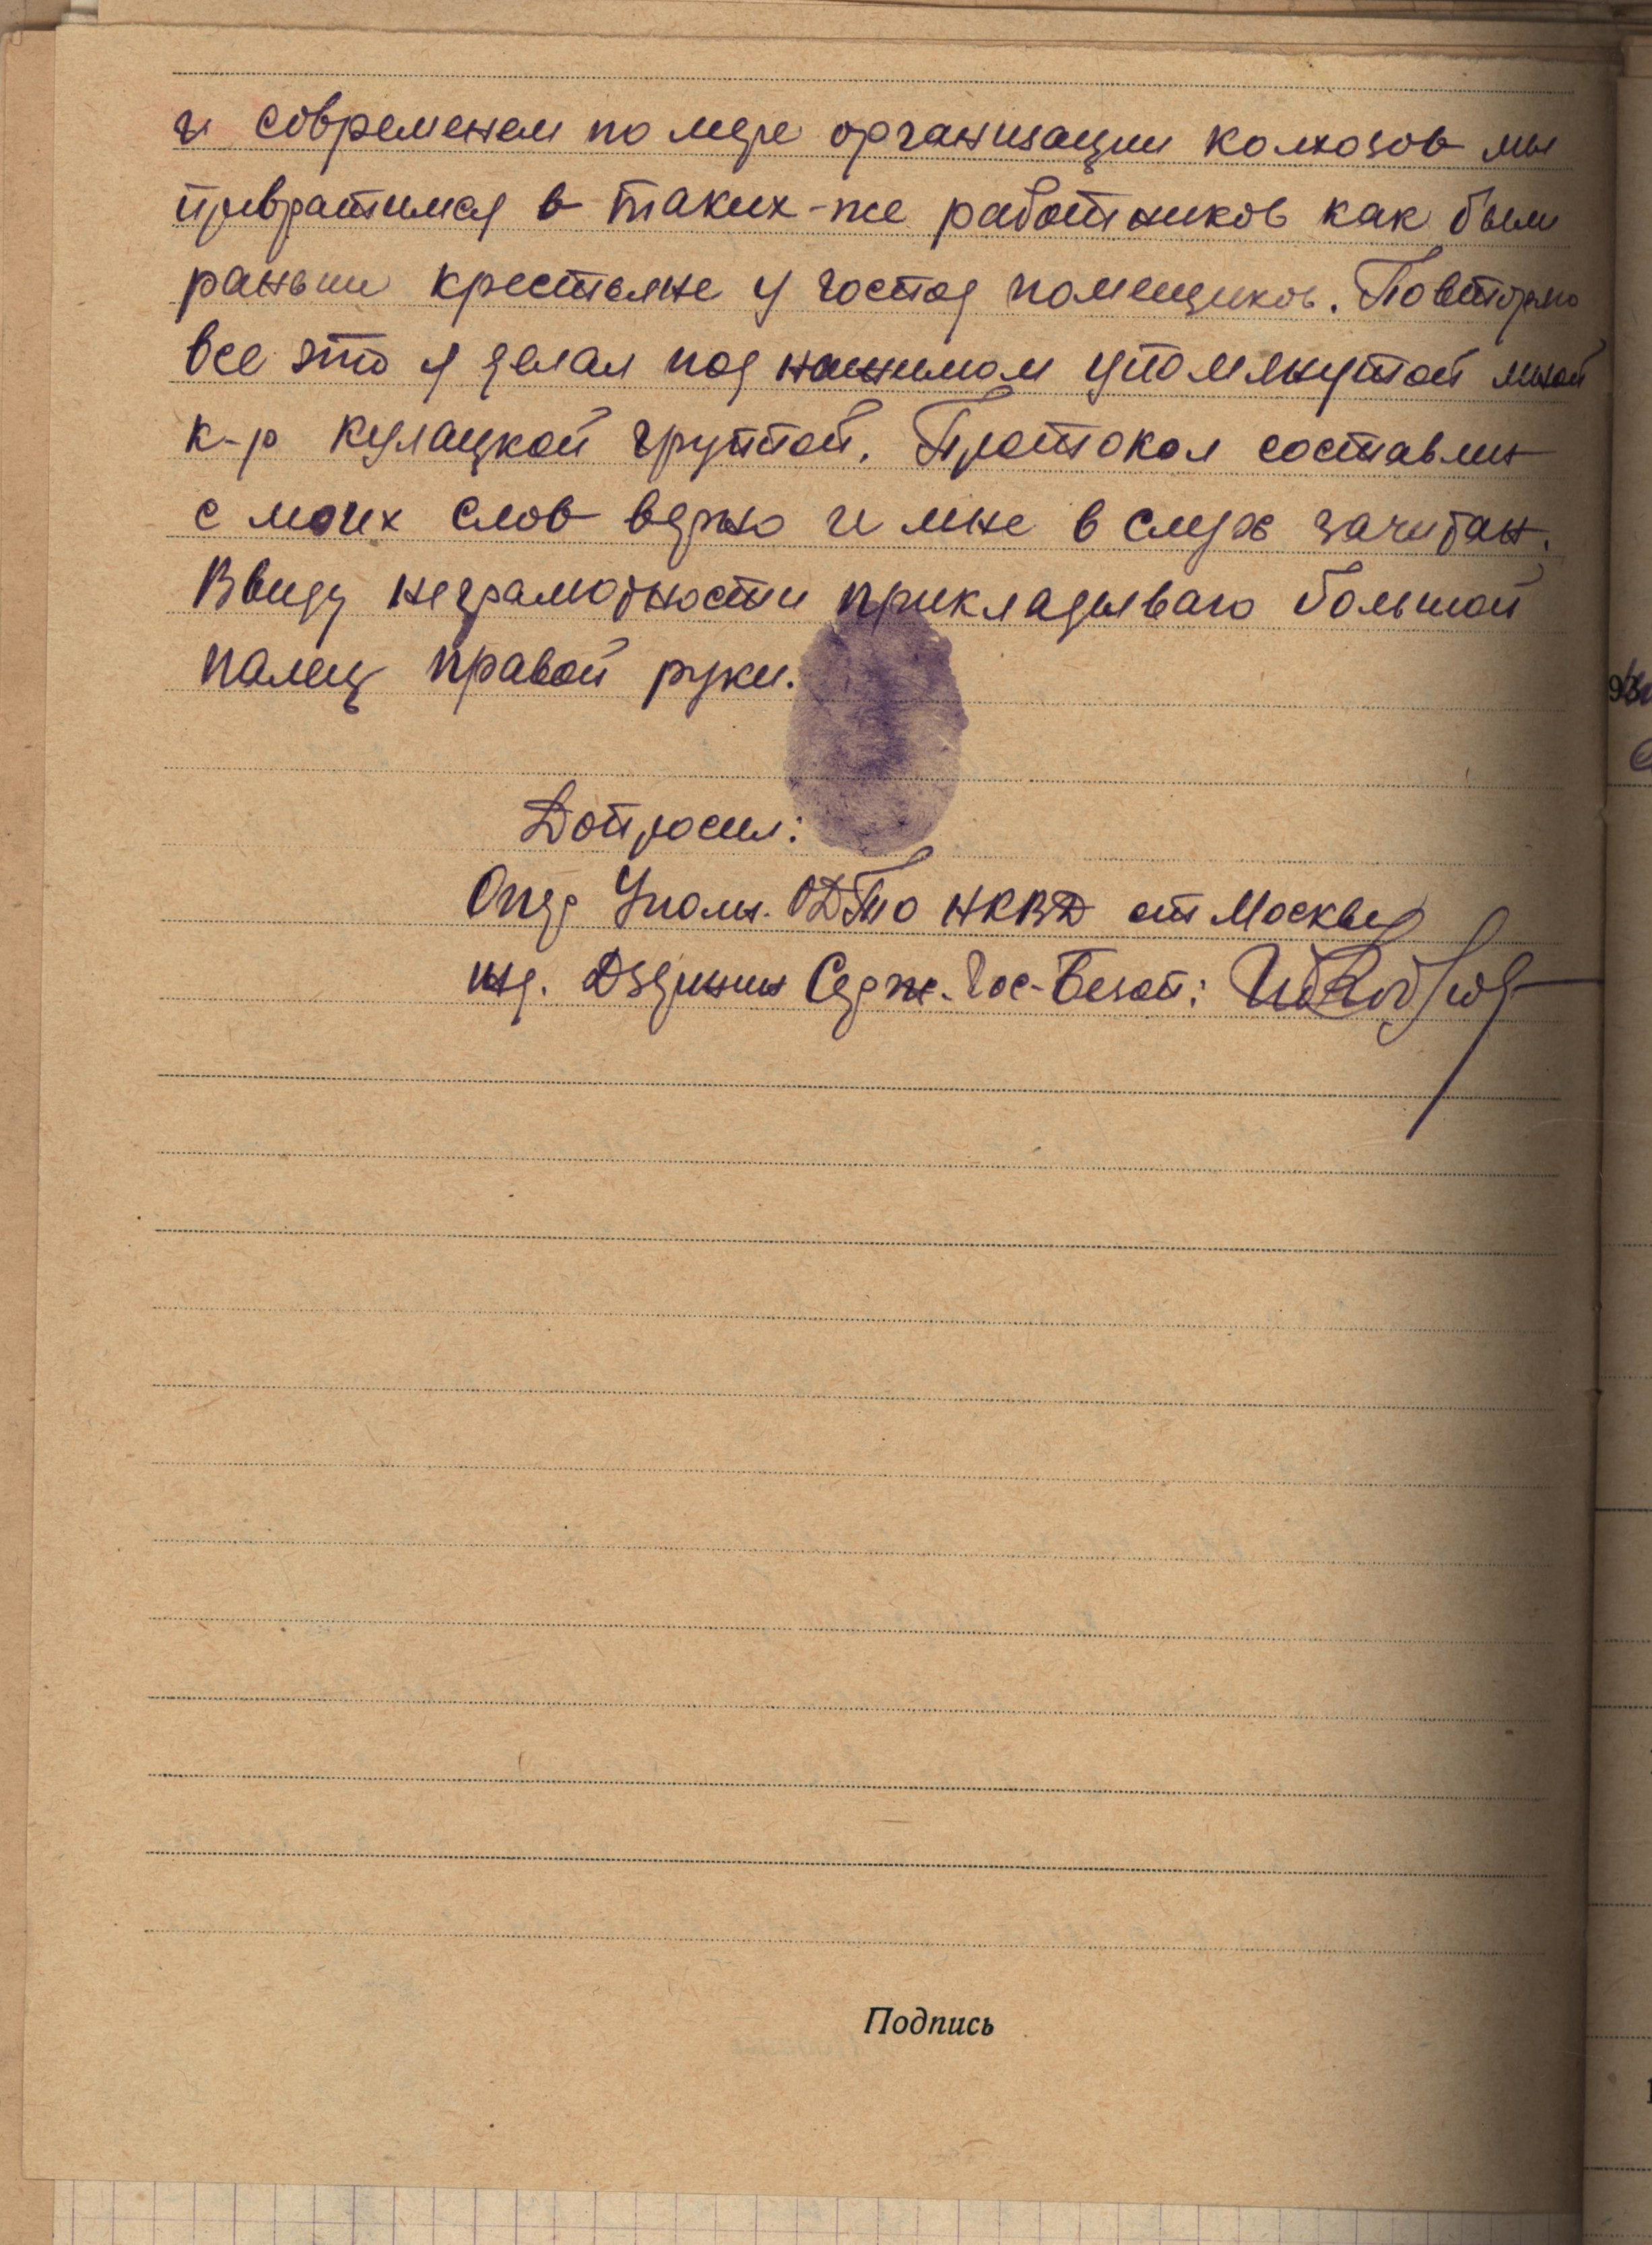 и современем по мере организации колхозов мы
превратимся в таких-же работников как были
раньши крестьяне у господ помещиков. Повторяю
все это я делал под нажимом упомянутой мной
к-р кулацкой группой. Протокол составлин
с моих слов верно и мне в слух зачитан.
Ввиду неграмотности прикладываю большой
палец правой руки.
Допросил:
Опер Уполн. ОДТО НКВД ст Москва
жд. Дзержин Серж. Гос-Безоп:
Подпись